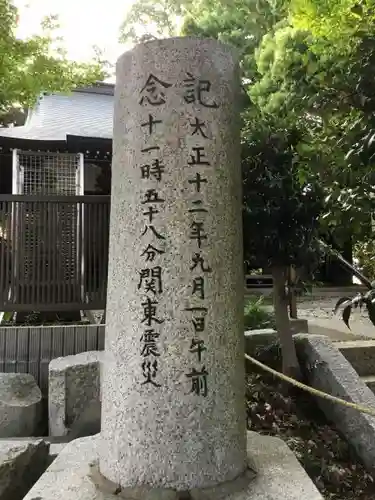 記念
大正十二年九月一日午前
十一時五十八分関東震災